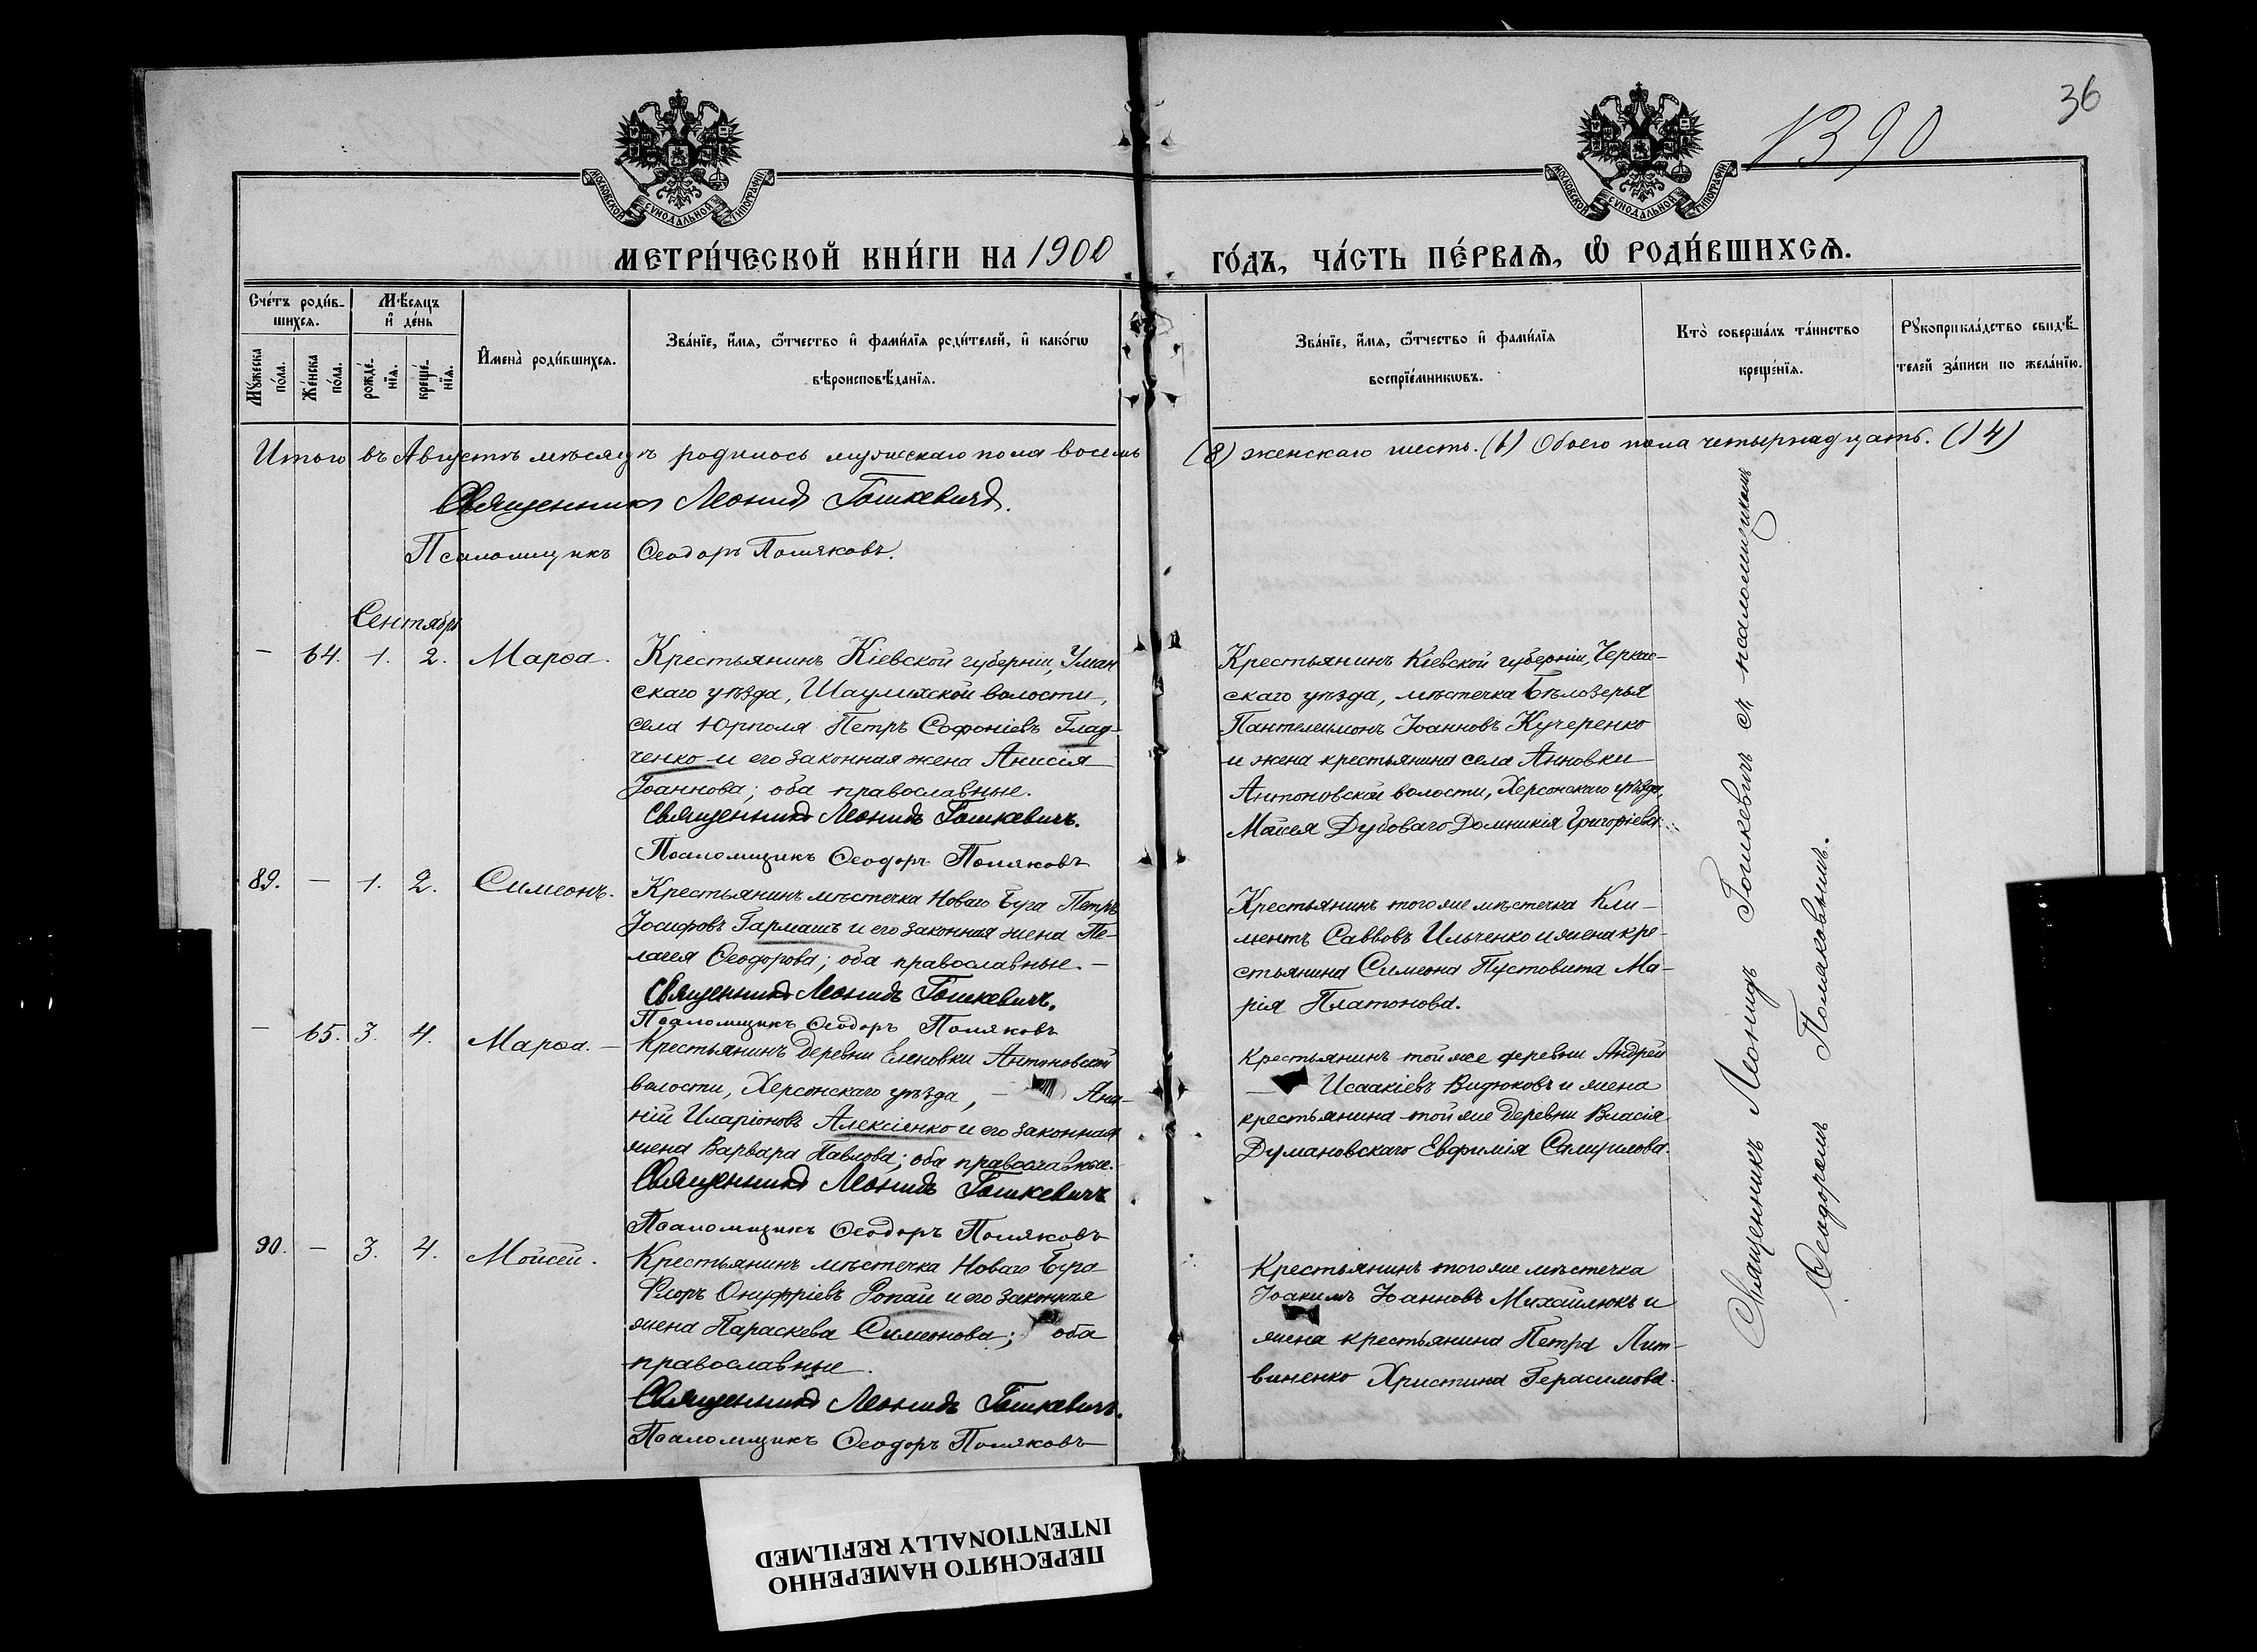 1390
36
МОСКОВСКОЙ СУНОДАЛЬНОЙ ТИПОГРАФІИ
МОСКОВСКОЙ СУНОДАЛЬНОЙ ТИПОГРАФІИ
МЕТРИ́ЧЕСКОЙ КНИ́ГИ НА 1900
ГО́ДЪ, ЧА́СТЬ ПЕ́РВАѦ, Ѡ҆ РОДИ́ВШИХСѦ.
Сче́тъ роди́в-
шихсѧ.
Мꙋ́жеска
по́ла.
Же́нска
по́ла.
Мѣ́сѧцъ
и҆ де́нь
рожде́-
нїѧ.
креще́-
нїѧ.
И҆мена̀ роди́вшихсѧ.
Зва́нїе, и҆́мѧ, ѻ҆́тчество и҆ фами́лїѧ роди́телей, и҆ како́гѡ
вѣроисповѣ́данїѧ.
Зва́нїе, и҆́мѧ, ѻ҆́тчество и҆ фами́лїѧ
воспрїе́мникѡвъ.
Кто̀ соверша́лъ та́инство
креще́нїѧ.
Рꙋкоприкла́дство свидѣ́-
телей за́писи по жела́нїю.
Итого въ Августѣ мѣсяцѣ родилось мужескаго пола восемь (8) женскаго шесть. (6) Обоего пола четырнадцать. (14)
Священникъ Леонидъ Гошкевичъ.
Псаломщикъ Ѳеодоръ Поляковъ.
Сентябрь
— 64. 1. 2. Марѳа.
Крестьянинъ Кіевской губерніи, Уман
скаго уѣзда, Шаулихской волости,
села Юрполя Петръ Софоніевъ Глад-
ченко и его законная жена Анисія
Іоаннова; оба православные.
Священникъ Леонидъ Гошкевичъ.
Псаломщикъ Ѳеодоръ Поляковъ
Крестьянинъ Кіевской губерніи, Черкас-
скаго уѣзда, мѣстечка Бѣлозерья
Пантелеимонъ Іоанновъ Кучеренко
и жена крестьянина села Анновки
Антоновской волости, Херсонскаго уѣзда,
Моисея Дубоваго Домникія Григоріева.
89. — 1. 2. Симеонъ.
Крестьянинъ мѣстечка Новаго Буга Петръ
Іосифовъ Гармашъ и его законная жена Пе-
лагея Ѳеодорова; оба православные. —
Священникъ Леонидъ Гошкевичъ.
Псаломщикъ Ѳеодоръ Поляковъ
Крестьянинъ того же мѣстечка Кли-
ментъ Саввовъ Ильченко и жена кре-
стьянина Симеона Пустовита Ма-
рія Платонова.
— 65. 3. 4. Марѳа. —
Крестьянинъ деревни Еленовки Антоновской
волости, Херсонскаго уѣзда, — Ана-
ній Иларіоновъ Алексіенко и его законная
жена Варвара Павлова; оба православные.
Священникъ Леонидъ Гошкевичъ
Псаломщикъ Ѳеодоръ Поляковъ
Крестьянинъ той же деревни Андрей
— Исаакіевъ Видюковъ и жена
крестьянина той же деревни Власія
Думановскаго Евфимія Самуилова.
90. — 3. 4. Мойсей.
Крестьянинъ мѣстечка Новаго Буга
Флоръ Онуфріевъ Ропай и его законная
жена Параскева Симеонова; оба
православные.
Священникъ Леонидъ Гошкевичъ.
Псаломщикъ Ѳеодоръ Поляковъ
Крестьянинъ того же мѣстечка
Іоакимъ Іоанновъ Михайлюкъ и
жена крестьянина Петра Лит-
виненко Христина Герасимова.
Священникъ Леонидъ Гошкевичъ съ псаломщикомъ
Ѳеодоромъ Поляковымъ.
ПЕРЕСНЯТО НАМЕРЕННО
INTENTIONALLY REFILMED